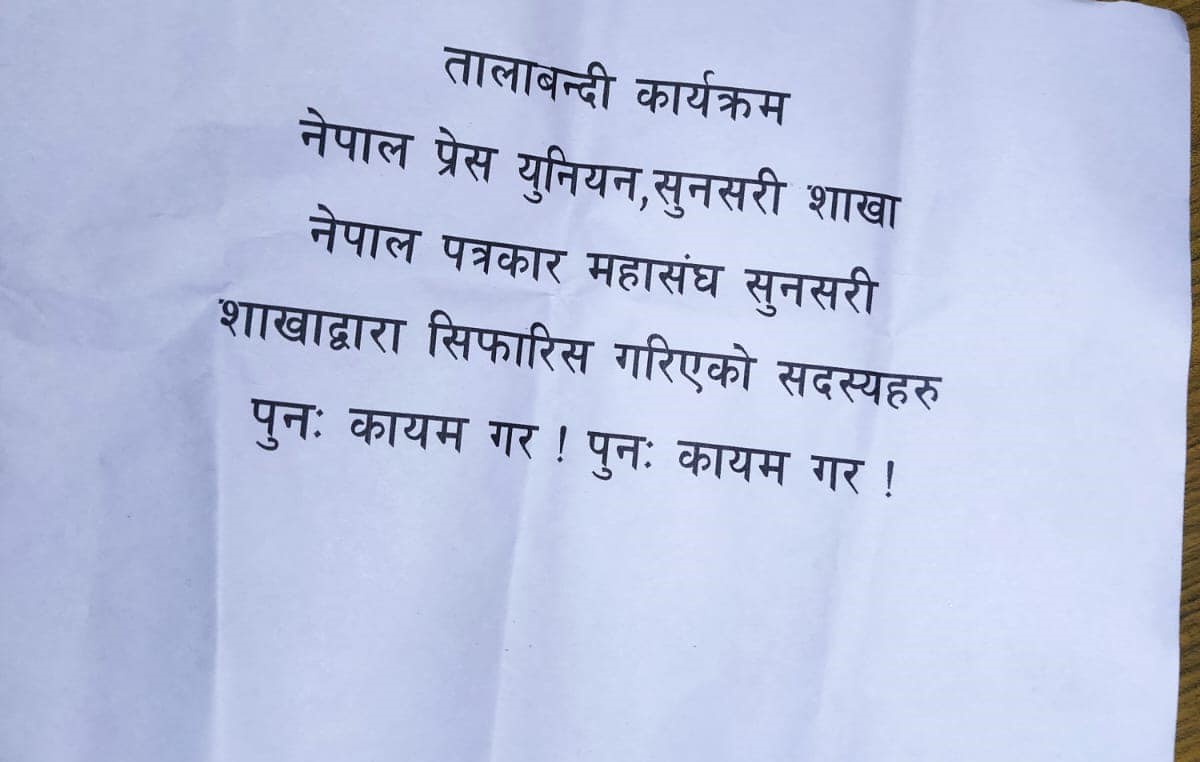 तालाबन्दी कार्यक्रम
नेपाल प्रेस युनियन,सुनसरी शाखा
नेपाल पत्रकार महासंघ सुनसरी
शाखाद्वारा सिफारिस गरिएको सदस्यहरु
पुनः कायम गर ! पुनः कायम गर !